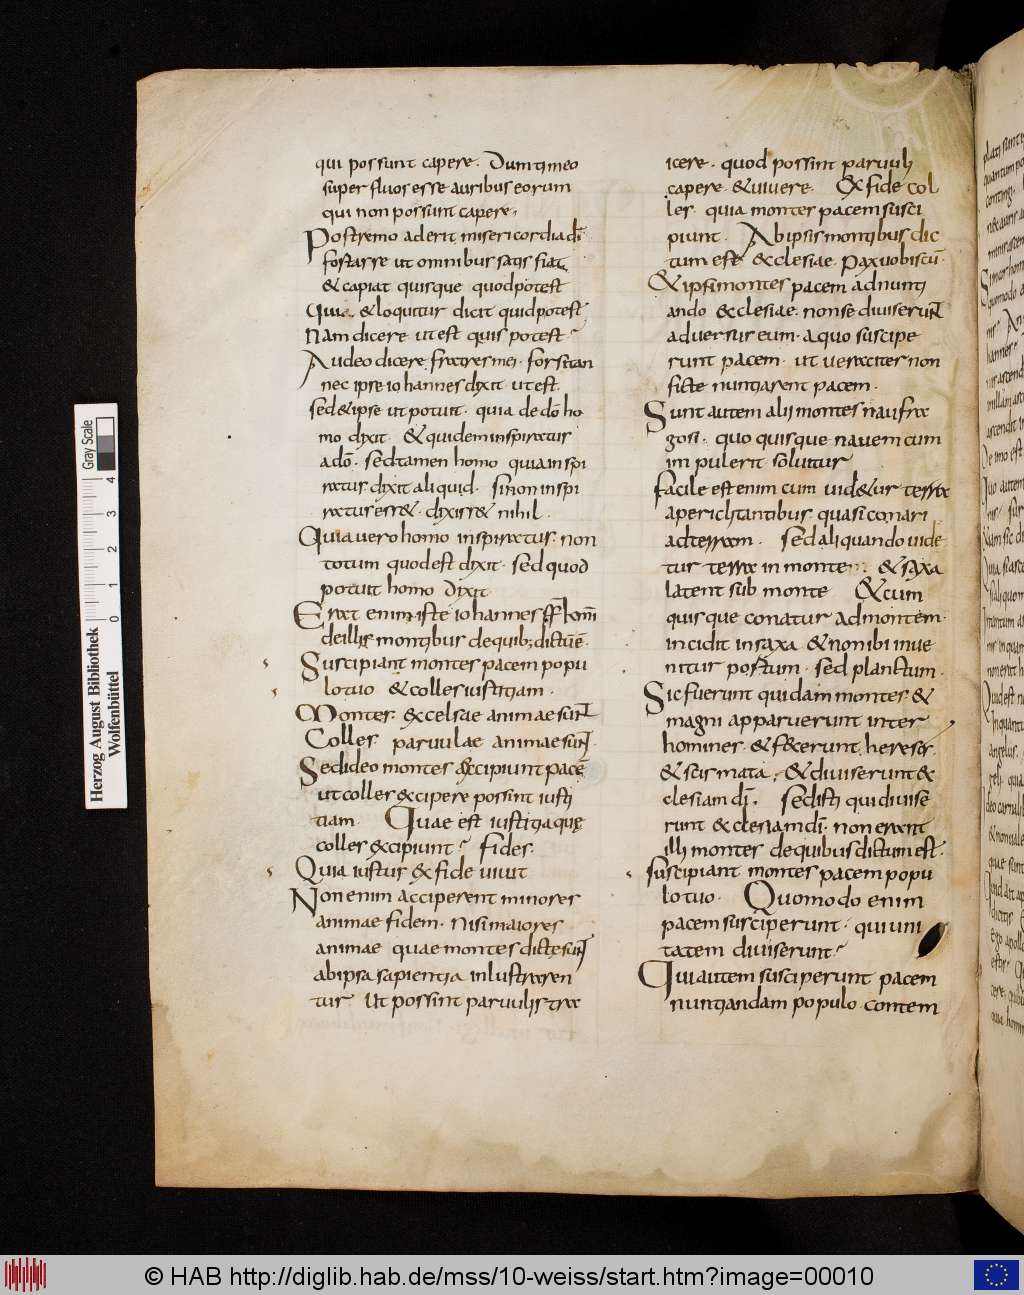 qui possunt capere. Dum timeo
superfluos esse auribus eorum
qui non possunt capere.
Postremo aderit misericordia dī
fortasse ut omnibus satis fiat
& capiat quisque quod potest
Quia & loquitur dicit quid potest
Nam dicere ut est quis potest?
Audeo dicere fratres mei. forsitan
nec ipse iohannes dixit ut est.
sed & ipse ut potuit. quia de dō ho
mo dixit. & quidem inspiratus
a dō. sed tamen homo quia inspi
ratus dixit aliquid. si non inspi
ratus ess&. dixiss& nihil.
Quia vero homo inspiratus. non
totum quod est dixit. sed quod
potuit homo dixit
Erat enim iste iohannes
de illis montibus de quib; dictū ē.
Suscipiant montes pacem popu
lo tuo & colles iustitiam.
Montes excelsae animae sunt
Colles parvulae animae sunt.
Sed ideo montes excipiunt pacē
ut colles excipere possint iusti
tiam. Quae est iustitia quę
colles excipiunt? fides.
Quia iustus ex fide vivit
Non enim acciperent minores
animae fidem. nisi maiores
animae quae montes dicte sunt
ab ipsa sapientia inlustraren
tur ut possint parvulis trae
icere. quod possint parvuli
capere. & vivere. Ex fide col
les. quia montes pacem susci
piunt. Ab ipsis montibus dic
tum est ecclesiae. Pax vobiscū.
& ipsi montes pacem adnunti
ando ecclesiae. non se diviserunt
adversus eum. a quo suscipe
runt pacem. ut veraciter non
ficte nuntiarent pacem.
Sunt autem alii montes naufra
gosi. quo quisque navem cum
impulerit solvitur
facile est enim cum vid&ur terra
a periclitantibus quasi conari
ad terram. Sed aliquando vide
tur terra in monte. & saxa
latent sub monte & cum
quisque conatur ad montem.
incidit in saxa & non ibi inve
nitur portum. sed planctum.
Sic fuerunt quidam montes. &
magni apparuerunt inter
homines. & fecerunt hereses.
& scismata. & diviserunt ec
clesiam dī. Sed isti qui divise
runt ecclesiam dī. non erant
illi montes de quibus dictum est.
suscipiant montes pacem popu
lo tuo. Quomodo enim
pacem susciperunt. qui uni
tatem diviserunt?
Qui autem susciperunt pacem
nuntiandam populo. contem
Herzog August Bibliothek
Wolfenbüttel
0 1 2 3 4
Gray Scale
© HAB http://diglib.hab.de/mss/10-weiss/start.htm?image=00010